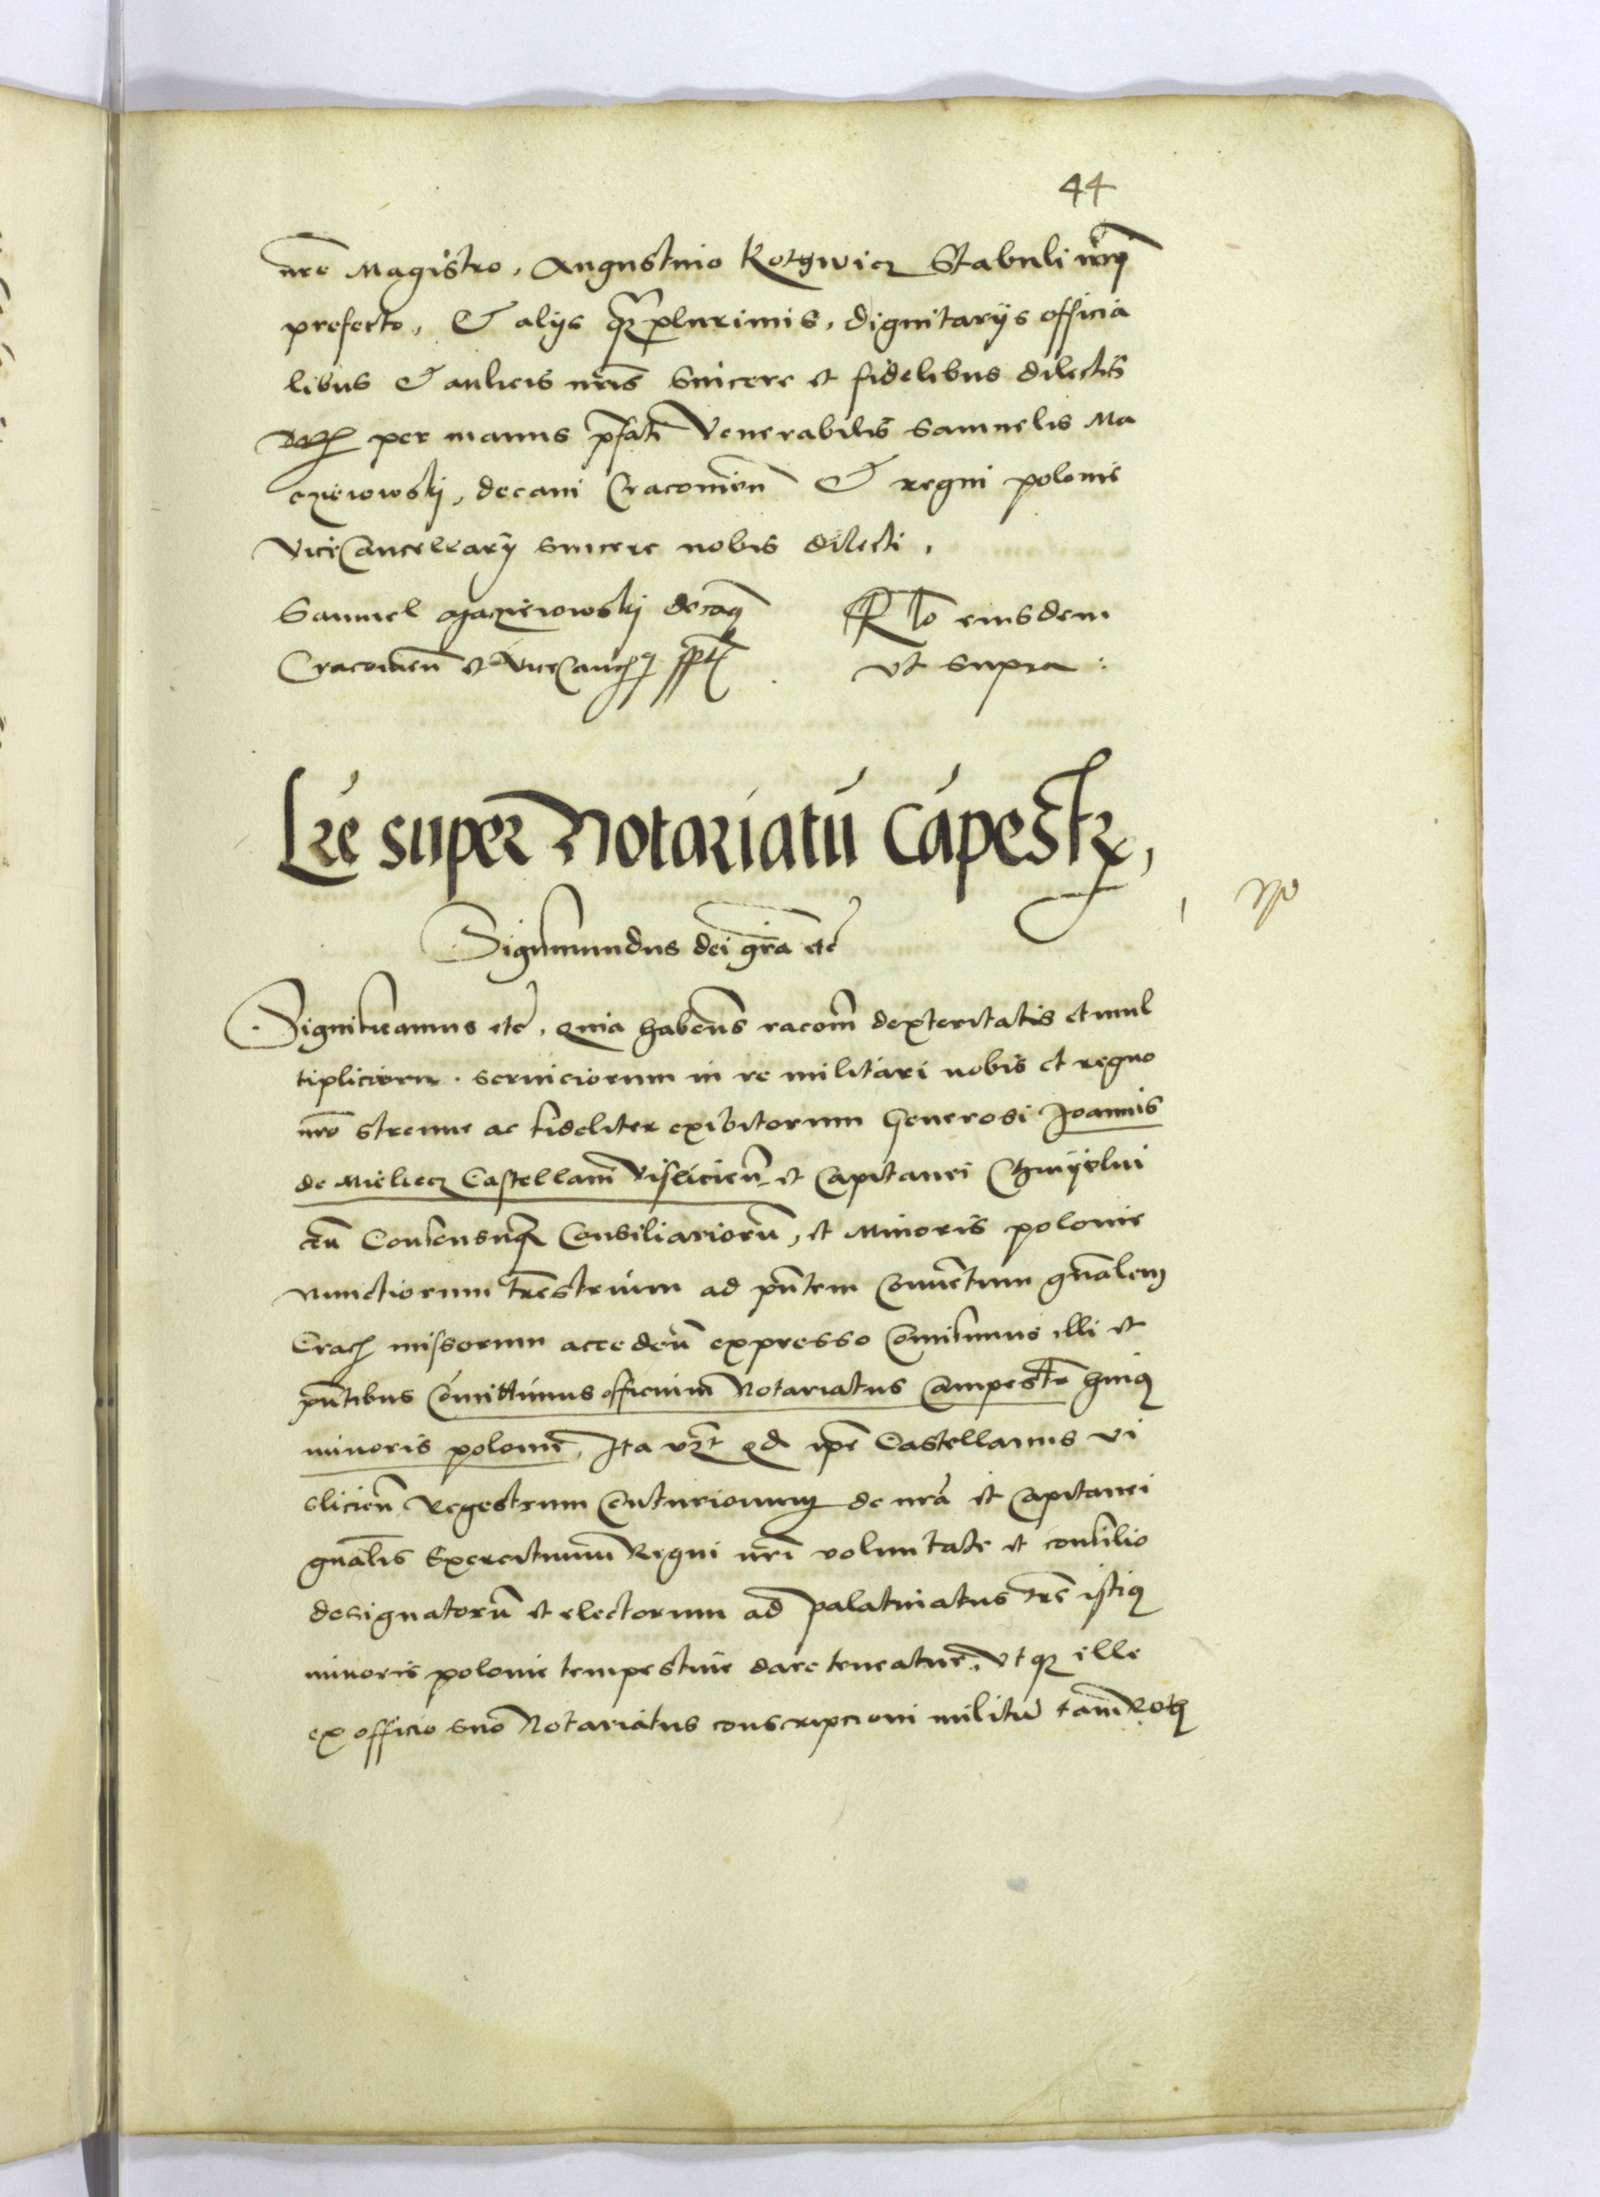 44
nrẽ Magistro, Augustino Kotgwicz Stabuli nrj
prefecto, & alijs qz plurimis, dignitarijs officia
libus & aulicis nrĩs sincere et fidelibus dilectis
per manus pfati Venerabilis Samuelis Ma
czieiowskj, decani Cracovien̄ & regni polonie
ViceCancellarij sincere nobis dilecti.
Samuel Maczieiowskj decaꝯ
Cracovien̄ et ViceCanc sspt
Rlo eiusdem
ut supra :
Lrẽ super Notariatũ Cãpestr,
Sigismundus dei grã etc̃
Significamus etc̃, quia habens racom̃ dexteritatis et mul
tipliciorum serviciorum in re militari nobis et regno
nrõ strenue ac fideliter exibitorum Generosi Joannis
de Mielecz Castellani Vislicien̄ et Capitanei Chmyelni
cum Consensuqz Consiliariorũ, et Minoris polonie
Nunctiorum trẽstrium ad pñtem Conventum gñalem
Crac missorum acceden̄ expresso Comisimus illi et
pñtibus Cõmittimus officium Notariatus Campestre huiꝯ
minoris polonie, Ita vzt qd ipẽ Castellanus Vi
slicien̄ Regestrum Centurionum de nrã et Capitanei
gñalis Exercituum Regni nrĩ voluntate et consilio
designatorũ et electorum ad palatinatus trẽ istiꝯ
minoris polonie tempestive dare teneatur, utqz ille
ex officio suo Notariatus conscripcioni militũ tam Roth